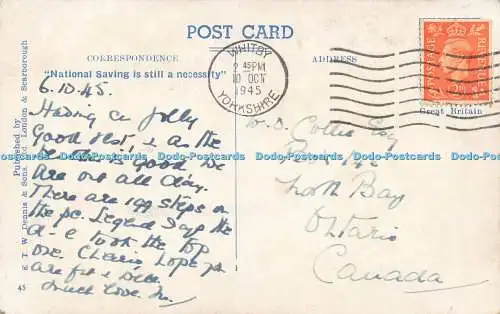 POST CARD
CORRESPONDENCE
ADDRESS
"National Saving is still a necessity"
WHITBY
2 45 PM
10 OCT
1945
YORKSHIRE
POSTAGE REVENUE
Great Britain
6.10.45
Having a jolly
good rest, & as the
is good we
are out all day.
There are 199 steps on
the p.c. Legend says the
took the top
one. Cheerio hope
are fit & well.
Much love
Esq
North Bay
Ontario
Canada
Published by
E. T. W. Dennis & Sons, Ltd., London & Scarborough
45
Dodo-Postcards Dodo-Postcards Dodo-Postcards Dodo-Postcards Dodo-Postcards